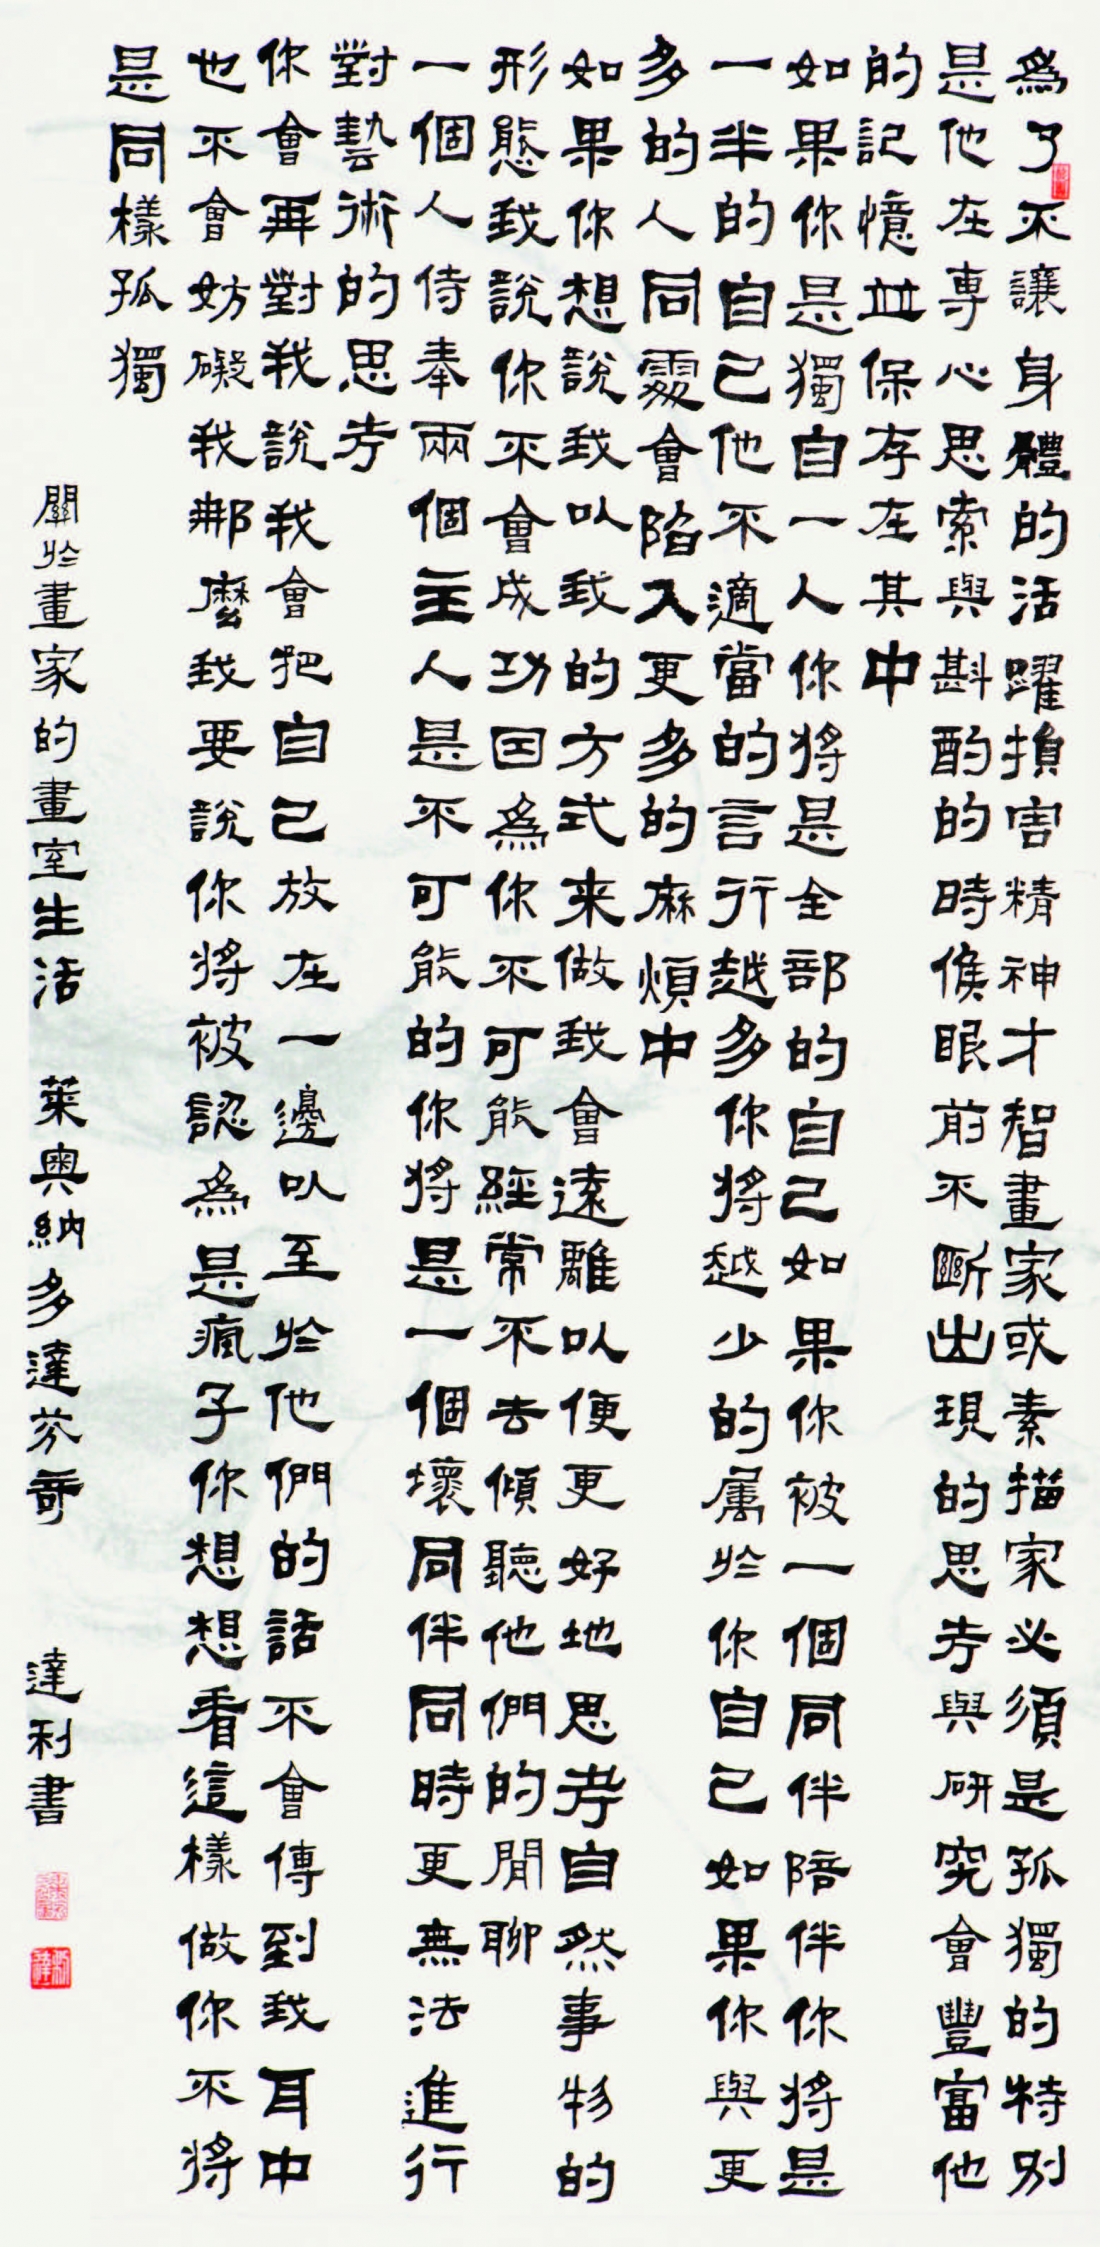 為了不讓身體的活躍損害精神才智畫家或素描家必須是孤獨的特別
是他在專心思索與斟酌的時候眼前不斷出現的思考與研究會豐富他
的記憶並保存在其中
如果你是獨自一人你將是全部的自己如果你被一個同伴陪伴你將是
一半的自己他不適當的言行越多你將越少的屬於你自己如果你與更
多的人同處會陷入更多的麻煩中
如果你想說我以我的方式來做我會遠離以便更好地思考自然事物的
形態我說你不會成功因為你不可能經常不去傾聽他們的閒聊
一個人侍奉兩個主人是不可能的你將是一個壞同伴同時更無法進行
對藝術的思考
你會再對我說我會把自己放在一邊以至於他們的話不會傳到我耳中
也不會妨礙我那麼我要說你將被認為是瘋子你想想看這樣做你不將
是同樣孤獨
關於畫家的畫室生活 萊奧納多達芬奇 達利書